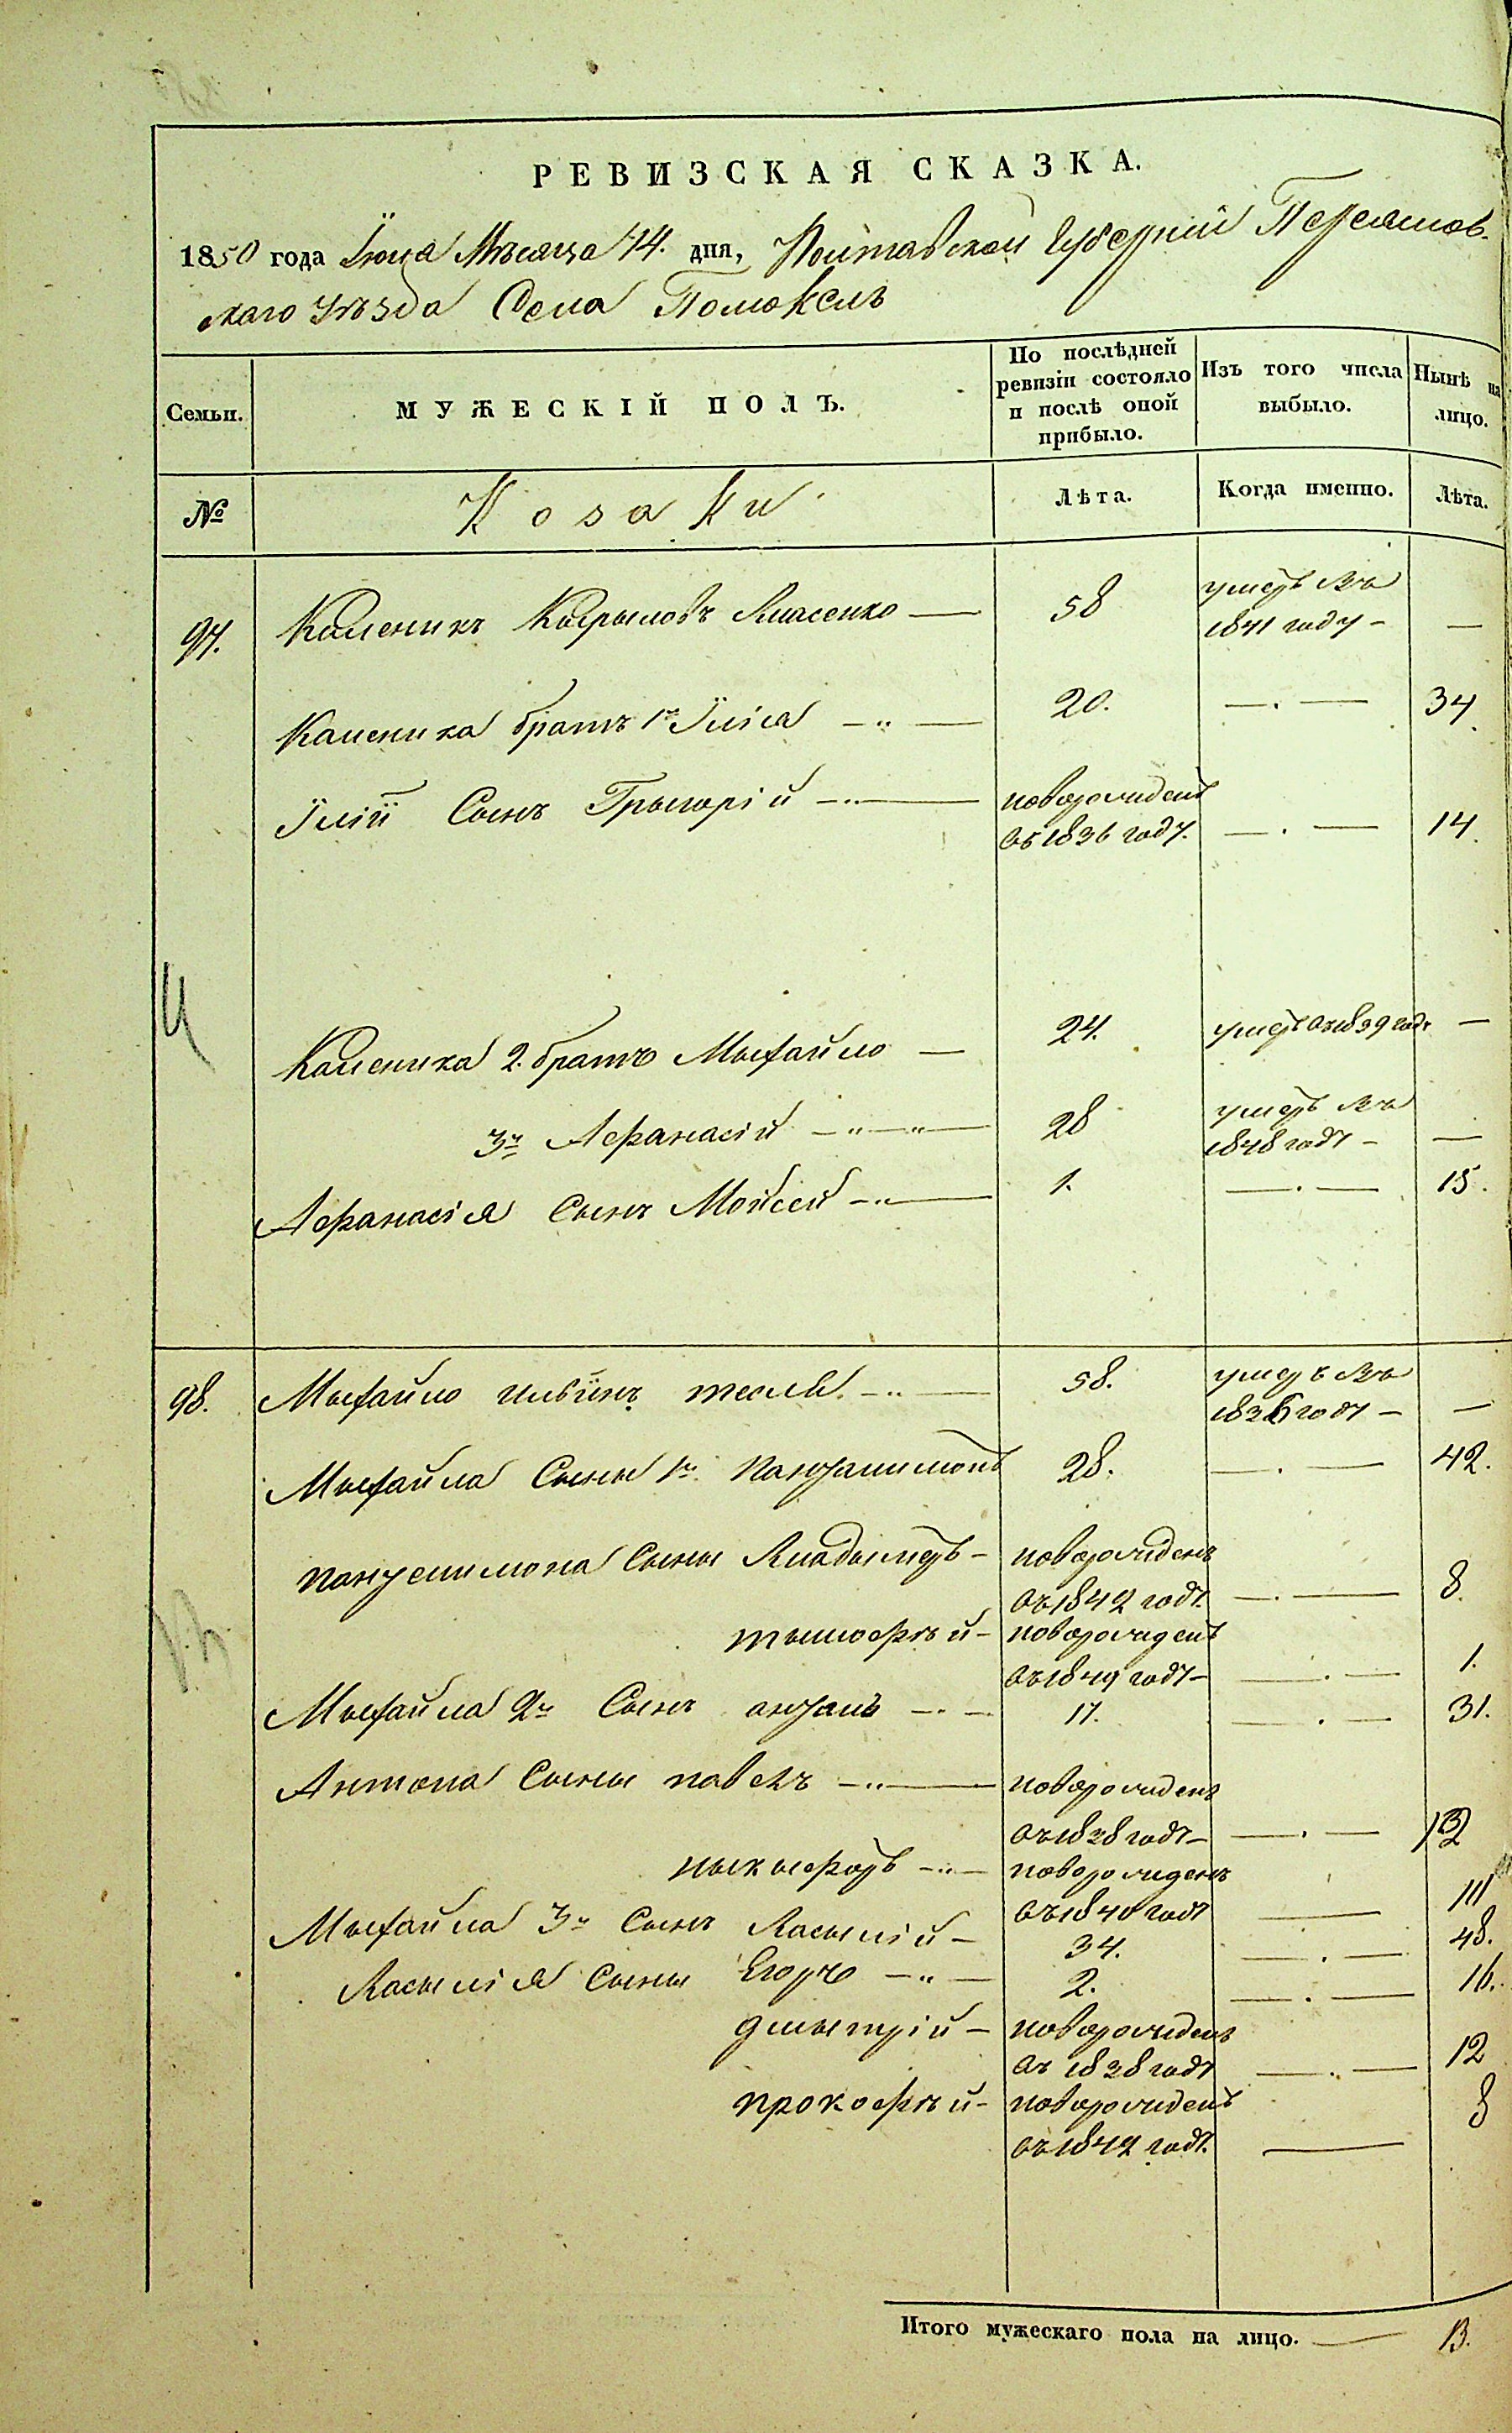 РЕВИЗСКАЯ СКАЗКА.
1850 года Іюна Мѣсяца 14. дня, Полтавской Губерніи Переяслов-
скаго уѣзда Села Помоклъ
Семьи. МУЖЕСКІЙ ПОЛЪ. По послѣдней ревизіи состояло и послѣ оной прибыло. Изъ того числа выбыло. Нынѣ на лицо.
№ Козаки Лѣта. Когда именно. Лѣта.
97. Каленикъ Кырыловъ Власенко — 58 умеръ въ 1841 году — —
Каленика братъ 1й Іліа — 20. — 34.
Іліи Сынъ Грыгорій — новорожденъ въ 1836 году. — 14.
Каленика 2. братъ Мыхайло — 24. умеръ въ 1839 году —
3й Афанасій — 28 умеръ въ 1848 году — —
Афанасія Сынъ Мойсей — 1. — 15.
98. Мыхайло ильинъ — 58. умеръ въ 1836 году — —
Мыхайла Сыны 1й Пантелимонъ 28. — 42.
пантелимона Сыны Владымеръ — новорожденъ въ 1842 году. — 8.
тымофѣй — новорожденъ въ 1849 году — — 1.
Мыхайла 2й Сынъ антонъ — 17. — 31.
Антона Сыны павелъ — новорожденъ въ 1838 году — — 12
ныкыфоръ — новорожденъ въ 1840 году —
Мыхайла 3й Сынъ Васылій — 34. — 48.
Васылія Сыны Егоръ — 2. — 16.
дмытрій — новорожденъ въ 1838 году — 12
прокофѣй — новорожденъ въ 1842 году. — 8
Итого мужескаго пола на лицо. — 13.